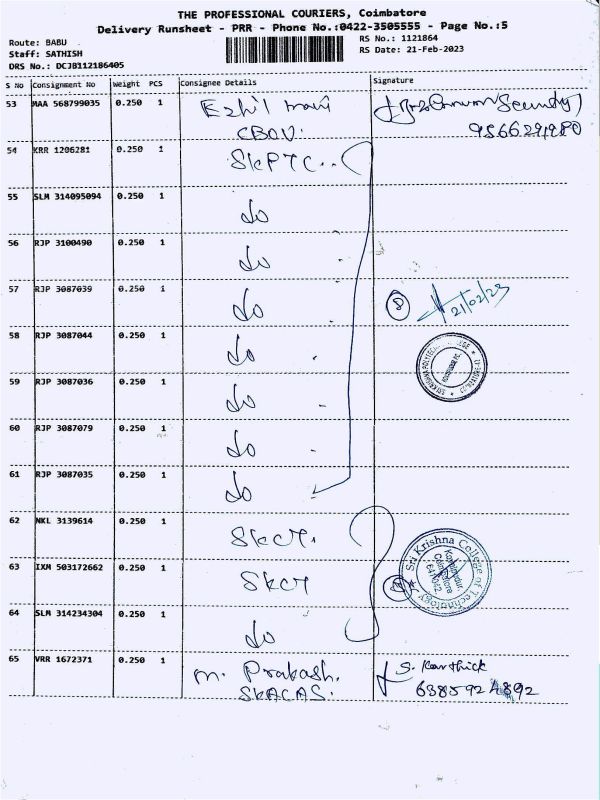 THE PROFESSIONAL COURIERS, Coimbatore
Delivery Runsheet - PRR - Phone No.:0422-3505555 - Page No.:5
Route: BABU
Staff: SATHISH
DRS No.: DCJB112186405
RS No.: 1121864
RS Date: 21-Feb-2023
S No Consignment No Weight PCS Consignee Details Signature
53 MAA 568799035 0.250 1 Ezhil
Security
54 KRR 1206281 0.250 1 SKPTC..
55 SLM 314095094 0.250 1 do
56 RJP 3100490 0.250 1 do
57 RJP 3087039 0.250 1 do 8 21/02/23
58 RJP 3087044 0.250 1 do
59 RJP 3087036 0.250 1 do
60 RJP 3087079 0.250 1 do
61 RJP 3087035 0.250 1 do
62 NKL 3139614 0.250 1 SKCT.
63 IXM 503172662 0.250 1 SKCT
Sri Krishna College of Technology
Coimbatore
641042
64 SLM 314234304 0.250 1 do
65 VRR 1672371 0.250 1 M. Prakash. S. Karthick
SKACAS.